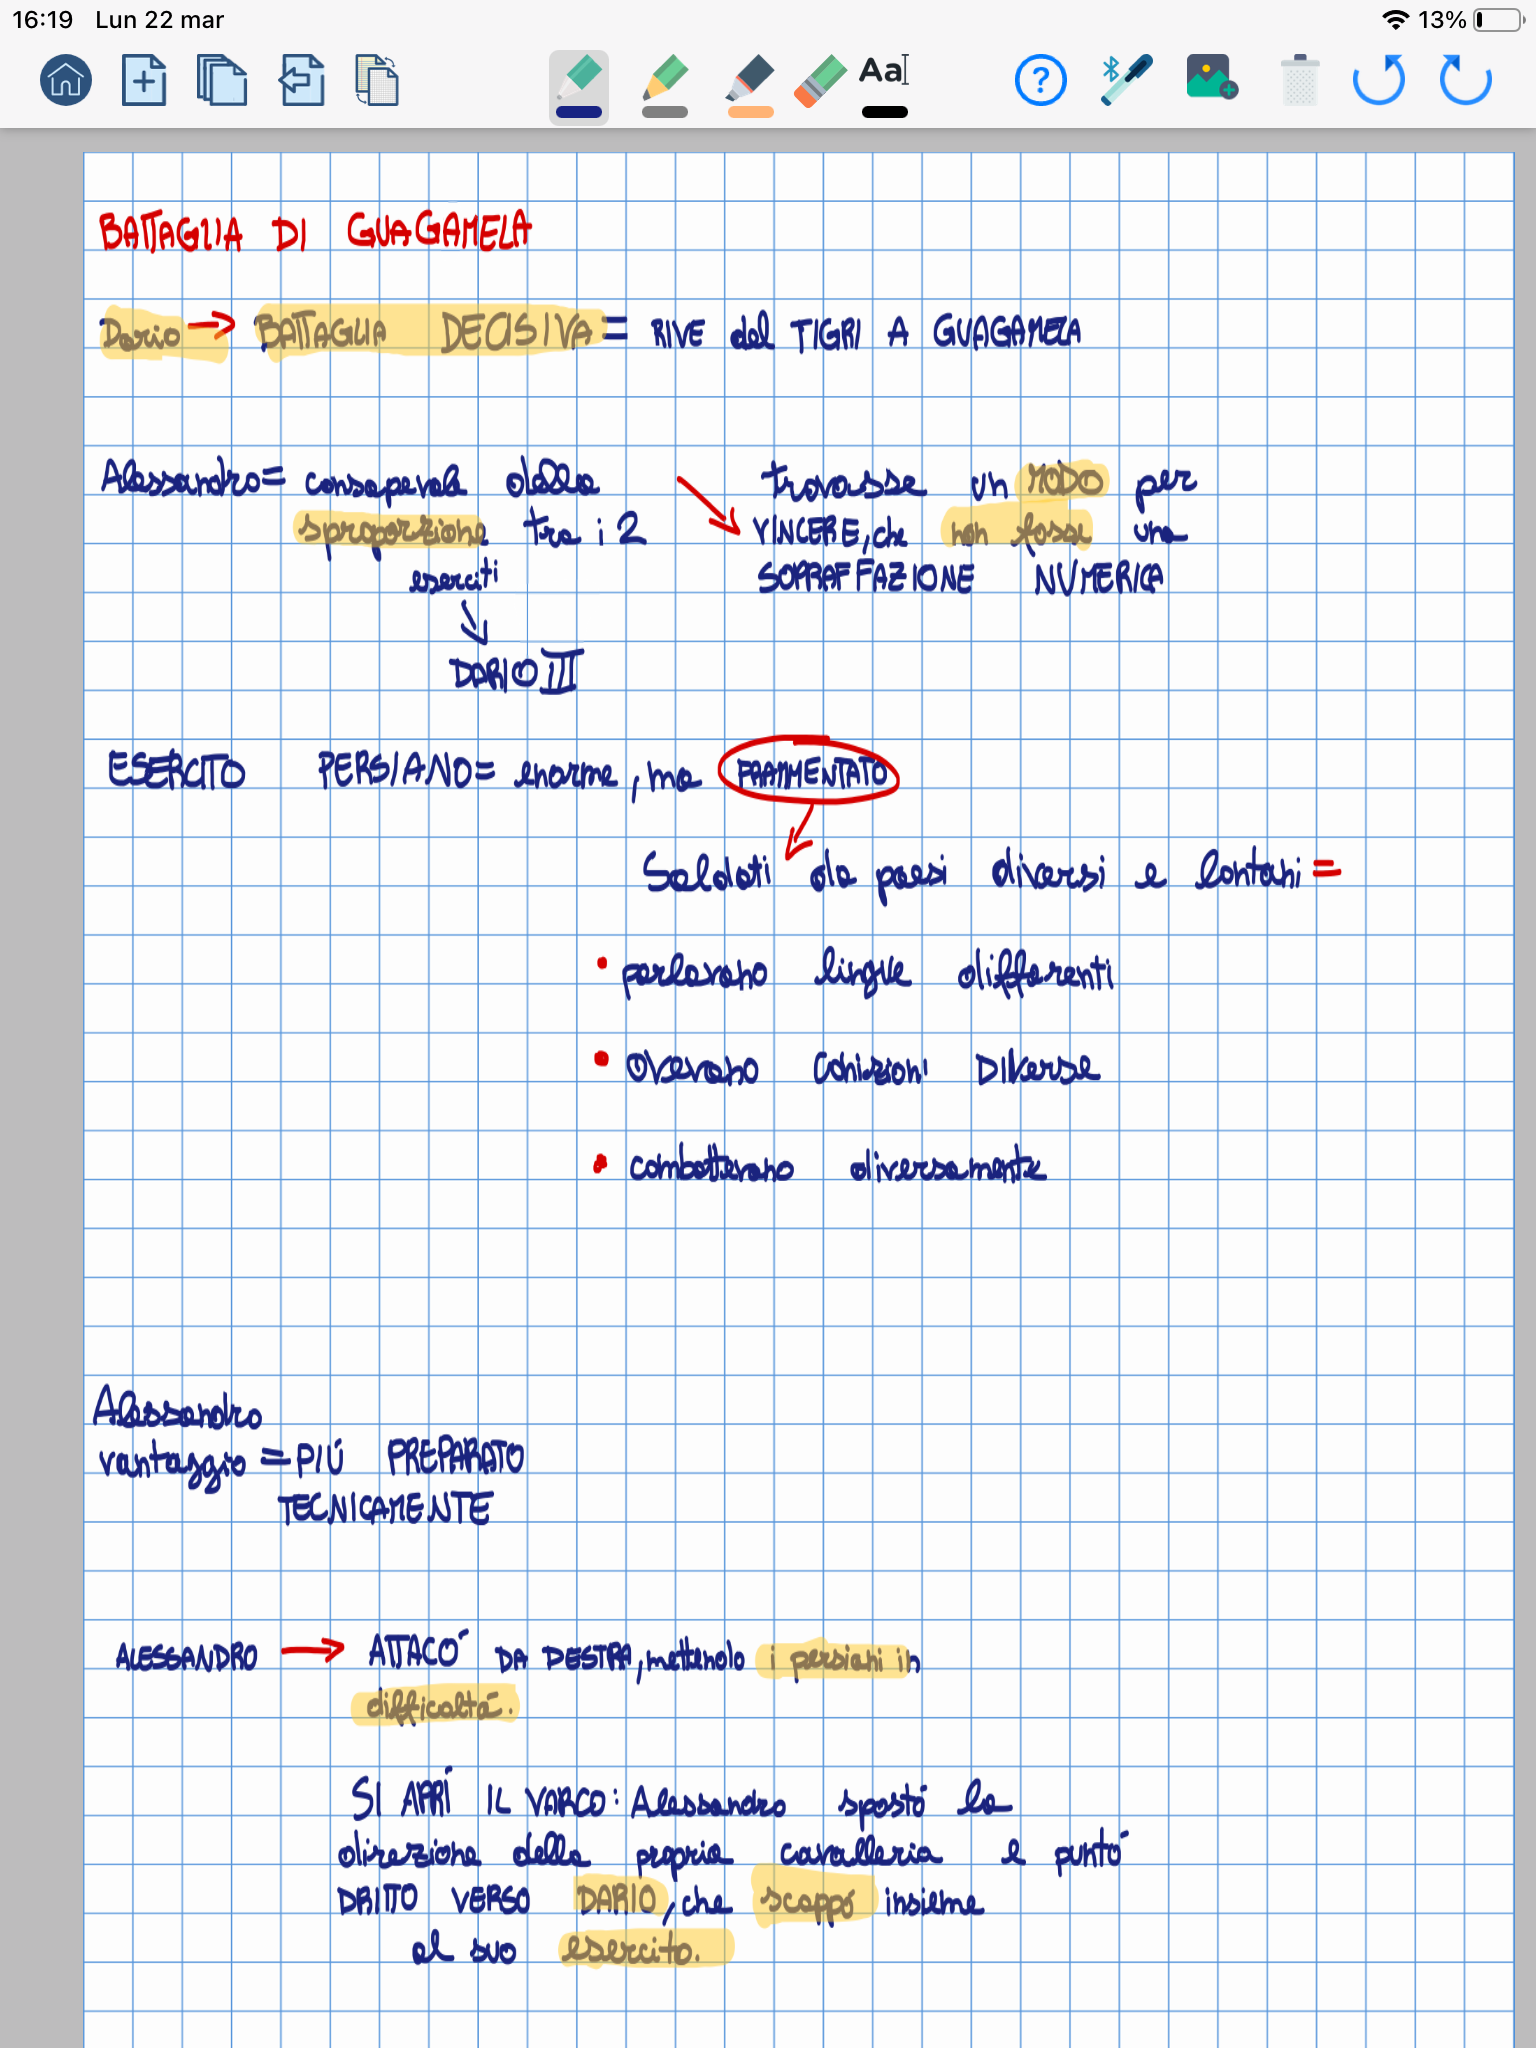 16:19 Lun 22 mar 13%
Aa
?
BATTAGLIA DI GUAGAMELA
Dario → BATTAGLIA DECISIVA = RIVE del TIGRI A GUAGAMELA
Alessandro = consapevole della trovasse un MODO per
sproporzione tra i 2 VINCERE, che non fosse una
eserciti SOPRAFFAZIONE NUMERICA
DARIO III
ESERCITO PERSIANO = enorme, ma FRAMMENTATO
Soldati da paesi diversi e lontani =
• parlavano lingue differenti
• avevano conizioni DIVerse
• combattevano diversamente
Alessandro
vantaggio = PIÚ PREPARATO
TECNICAMENTE
ALESSANDRO → ATTACÓ DA DESTRA, mettenolo i persiani in
difficoltá.
SI APRÍ IL VARCO: Alessandro spostó la
direzione della propria cavalleria e puntó
DRITTO VERSO DARIO, che scappó insieme
al suo esercito.